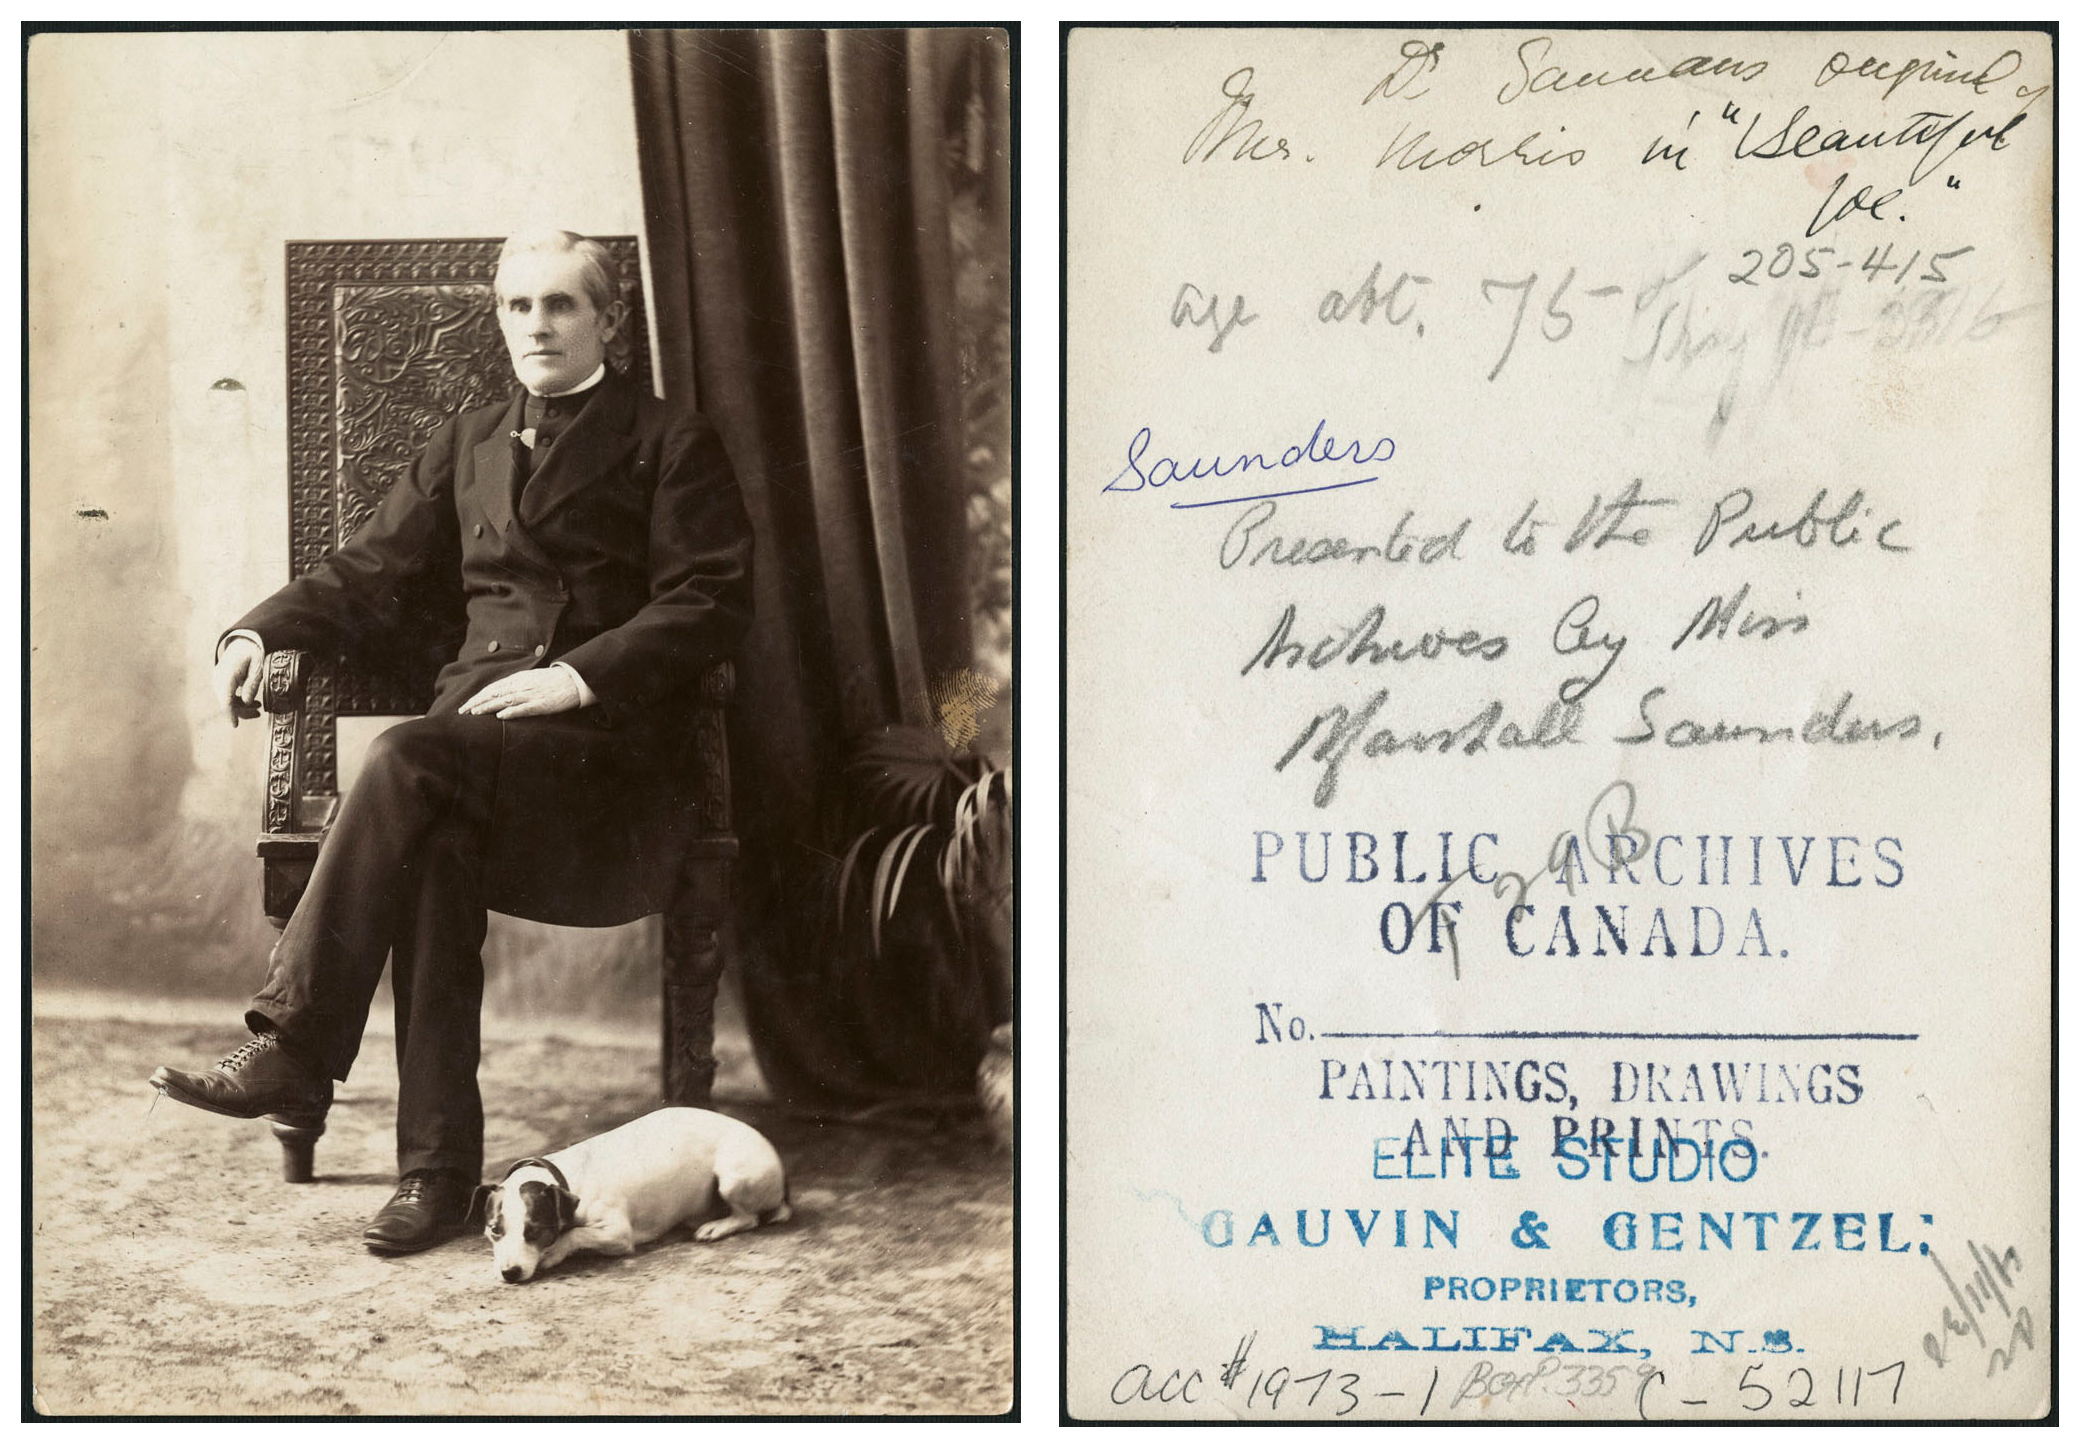 Dr Saunders original of
Mr. Morris in "Beautiful
Joe."
205-415
age abt. 75
Saunders
Presented to the Public
Archives by Miss
Marshall Saunders.
PUBLIC ARCHIVES
OF CANADA.
No.
PAINTINGS, DRAWINGS
AND PRINTS.
ELITE STUDIO
GAUVIN & GENTZEL,
PROPRIETORS,
HALIFAX, N.S.
acc #1973-1 Box P.3359 C-52117